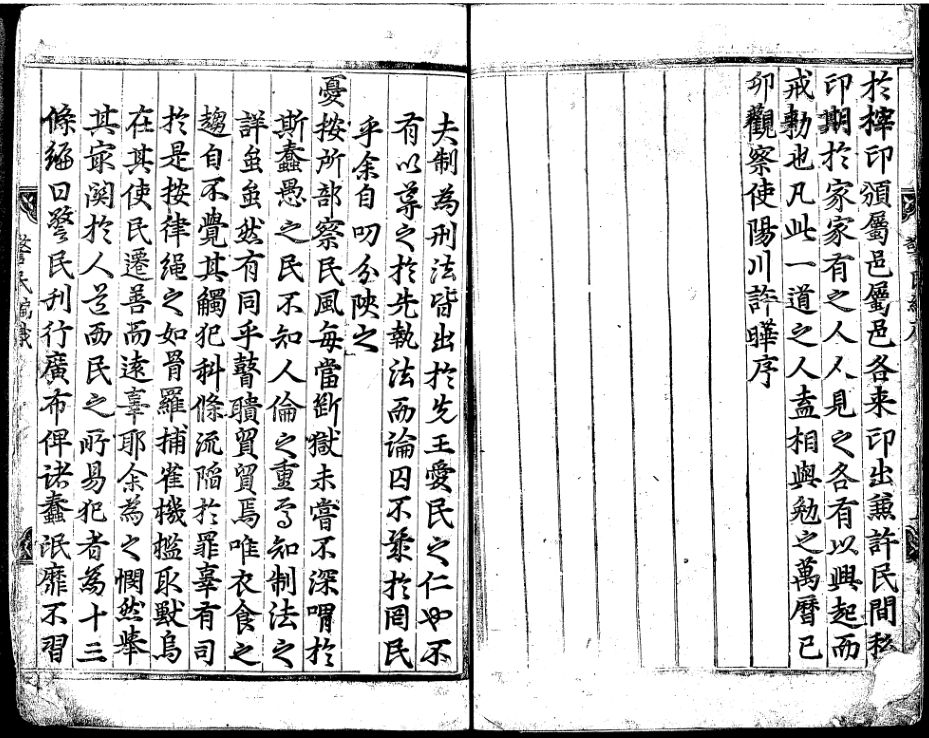 於梓印頒屬邑屬邑各来印出兼許民間私
印期於家家有之人人見之各有以興起而
戒勑也凡此一道之人盍相與勉之萬曆己
卯觀察使陽川許曄序
夫制為刑法皆出於先王愛民之仁也不
有以導之於先執法而論囚不幾於罔民
乎余自叨分陝之
憂按所部察民風每當斷獄未嘗不深喟於
斯蠢愚之民不知人倫之重焉知制法之
詳蚩蚩然有同乎瞽聵貿貿焉唯衣食之
趨自不覺其觸犯科條流陷於罪辜有司
於是按律繩之如罟羅捕雀機檻取獸烏
在其使民遷善而遠辜耶余為之憫然摹
其家関於人道而民之所易犯者為十三
條編曰警民刊行廣布俾诸蠢氓靡不習
警民編識